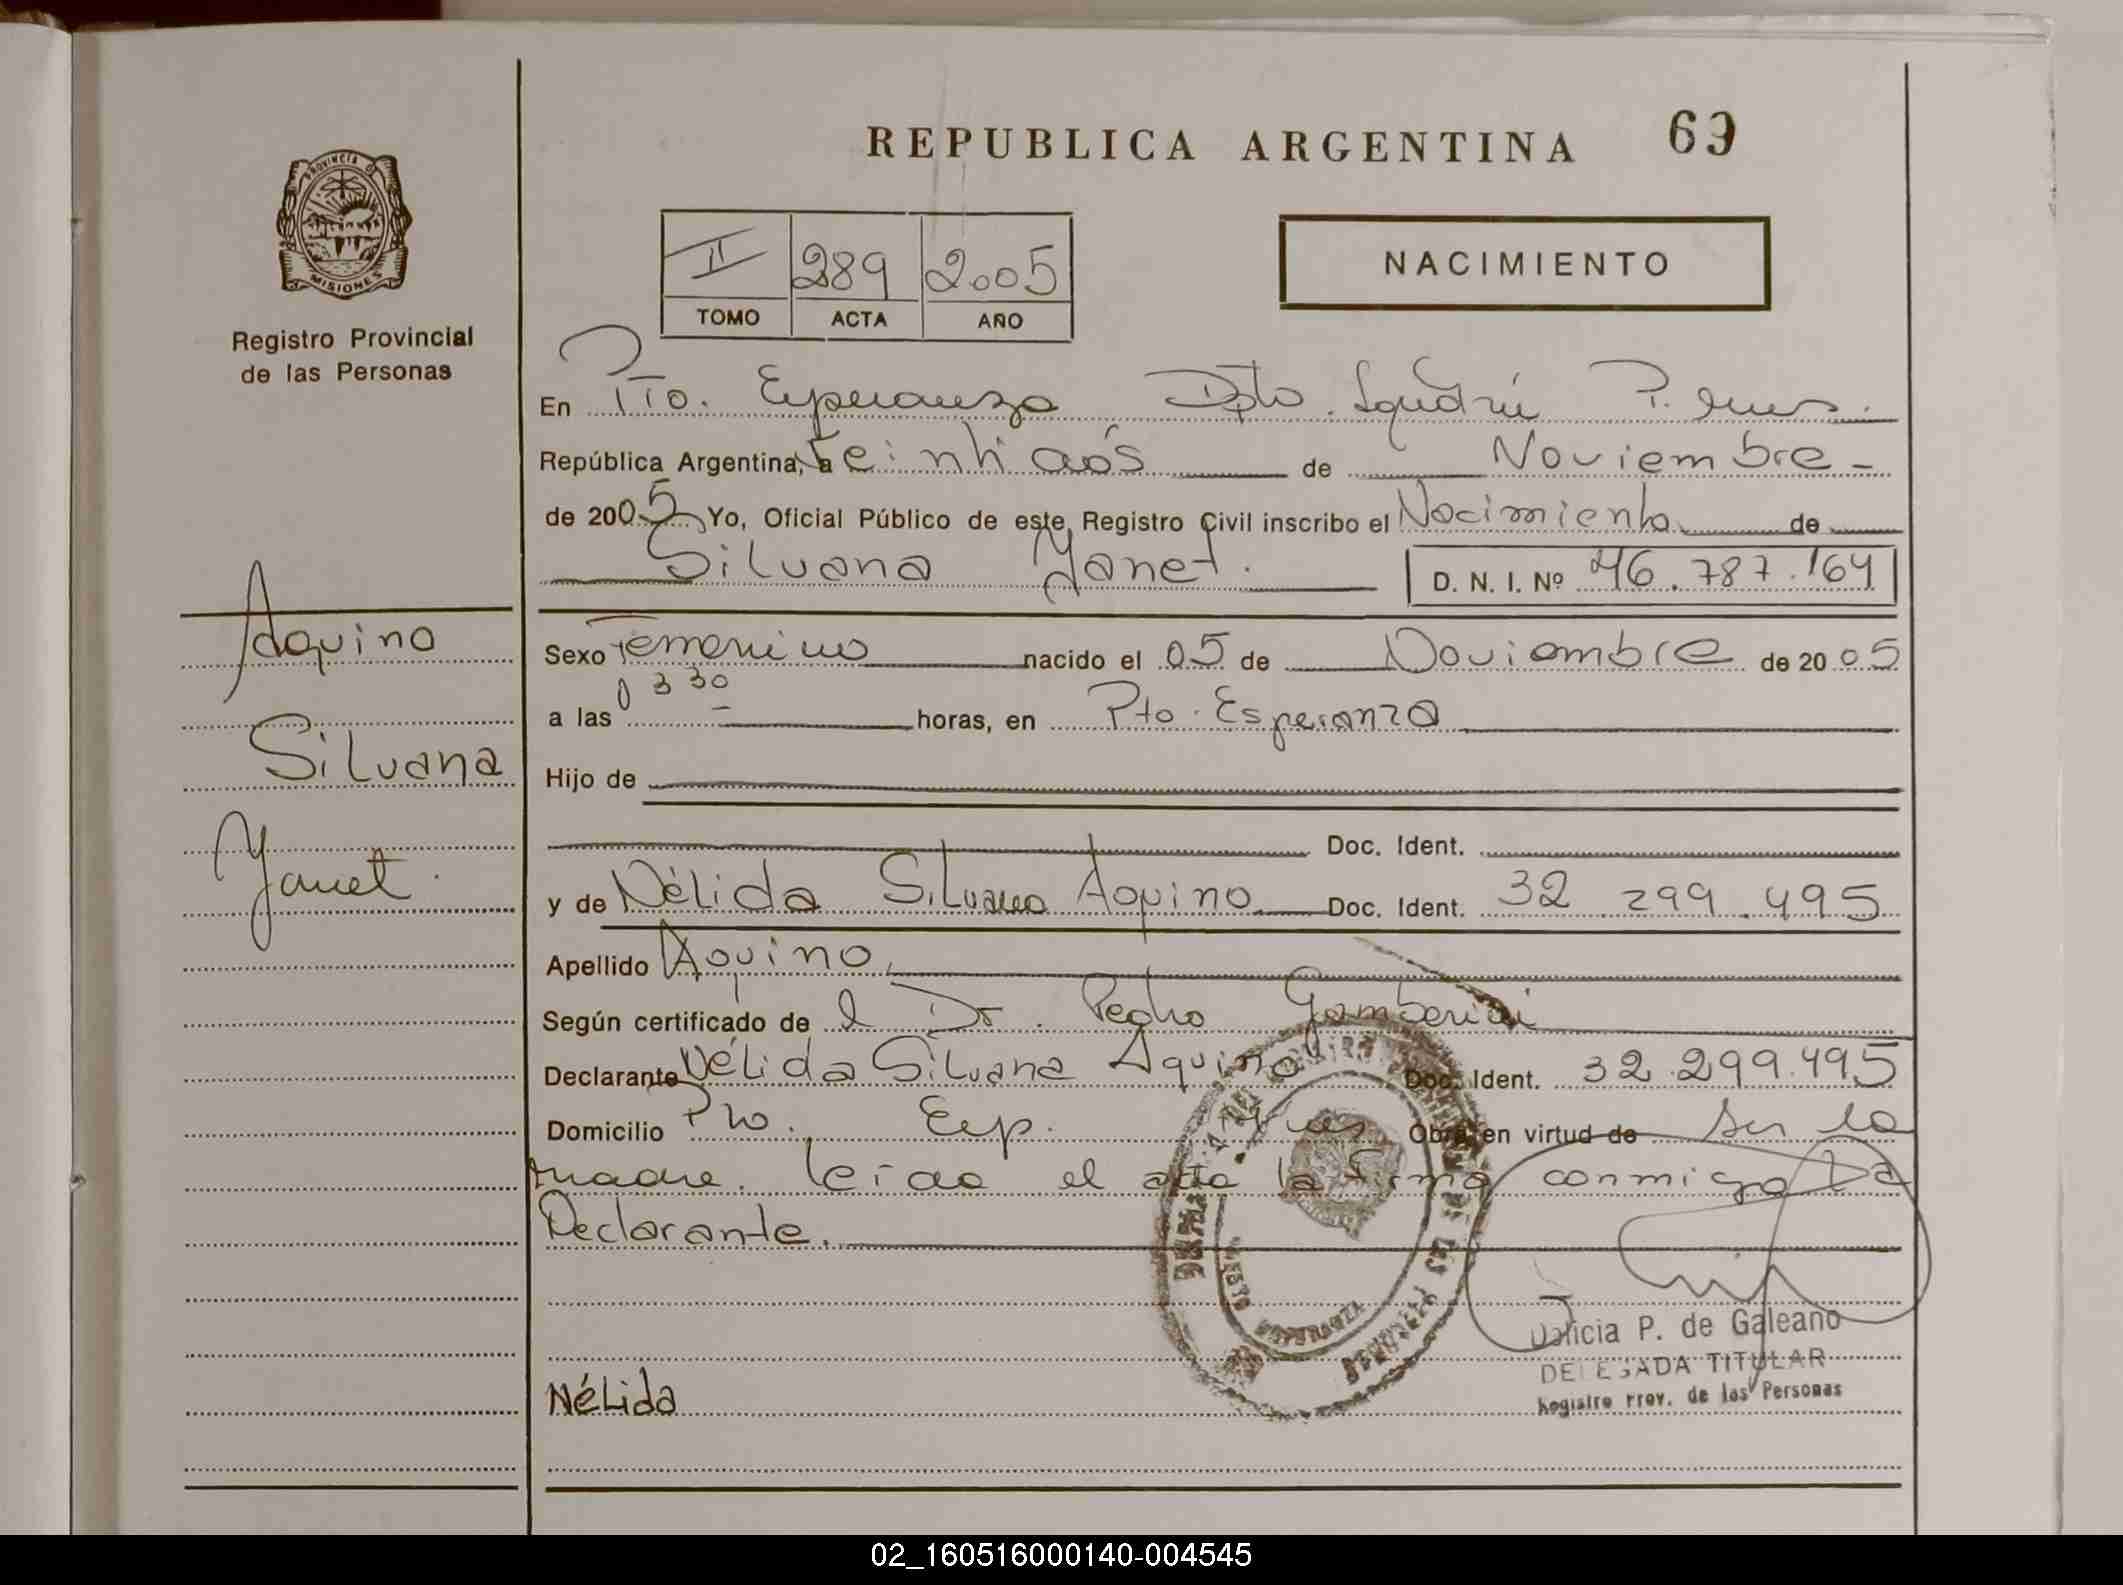 REPUBLICA ARGENTINA 69
PROVINCIA DE
MISIONES
Registro Provincial
de las Personas
II 289 2005
TOMO ACTA AÑO
NACIMIENTO
En Pto. Esperanza Dpto. Iguazú P. Mnes.
República Argentina, a Veintidós de Noviembre
de 2005 Yo, Oficial Público de este Registro Civil inscribo el Nacimiento de
Silvana Yanet. D. N. I. Nº 46.787.164
Aquino
Silvana
Yanet.
Sexo Femenino nacido el 05 de Noviembre de 2005
a las 0330 horas, en Pto. Esperanza
Hijo de
Doc. Ident.
y de Nélida Silvana Aquino Doc. Ident. 32 299.495
Apellido Aquino.
Según certificado de l Dr. Pedro
Declarante Nélida Silvana Aquino Doc. Ident. 32.299.495
Domicilio Pto. Esp. Mnes Obra en virtud de ser la
madre. leída el acta la firma conmigo la
Declarante.
Nélida
Dalicia P. de Galeano
DELEGADA TITULAR
Registro Prov. de las Personas
02_160516000140-004545